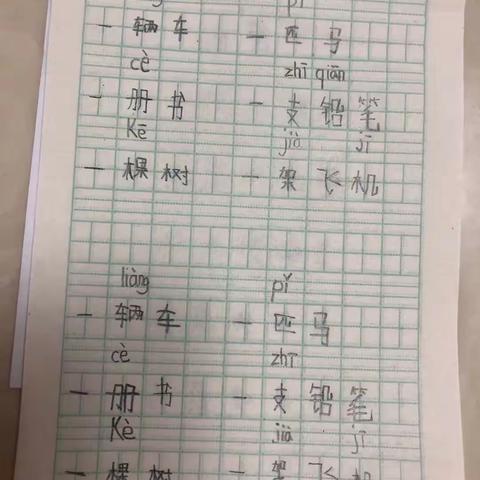 pǐ
一辆车 一匹马
cè zhī qiān
一册书 一支铅笔
Kē jià jī
一棵树 一架飞机
liàng pǐ
一辆车 一匹马
cè zhī
一册书 一支铅笔
Kè jià jī
一棵树 一架飞机